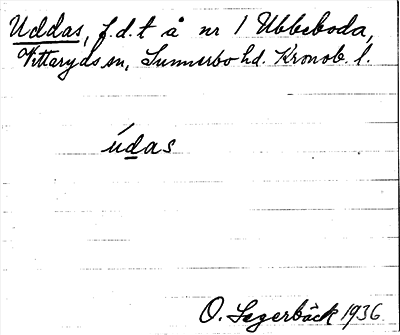 Uddas, f.d.t å nr 1 Ubbeboda,
Vittaryds sn, Sunnerbo hd. Kronob. l.
údas
O. Segerbäck 1936